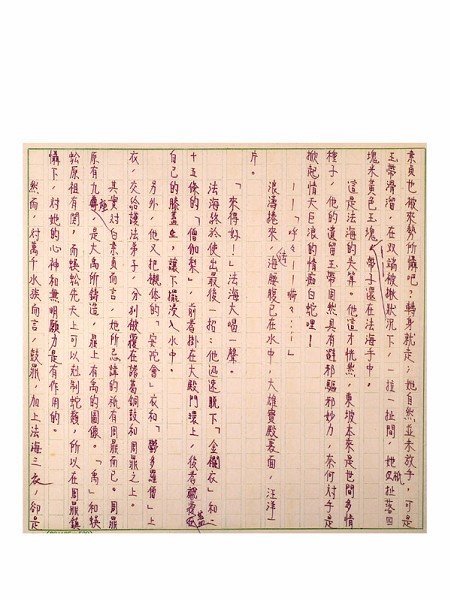 素貞也被來勢所懾吧，轉身就走；她自然並未放手，可是
玉帶滑溜，在双端被揪狀況下，一撞一扯間，她只扯落四
塊米黃色玉塊，帶子還在法海手中。
這是法海的失算。他這才恍然，東坡本來是世間多情
種子，他的遺留玉帶固然具有辟邪驅祁妙力，奈何对手是
掀起情天巨浪的情痴白蛇哩！
——「呼……——嘶……！」
浪濤捲來，海 已在水中，大雄寶殿裏面，汪洋一
片。
「來得好！」法海大喝一聲。
法海終於使出最後一招：他迅速脫下「金襴衣」和二
十五條的「僧伽梨」，前者掛在大殿門環上，後者 蓋
自己的膝蓋上，讓下擺没入水中。
另外，他又把襯体的「安陀會」衣和「鬱多羅僧」上
衣，交給護法弟子，分別被覆在諸葛銅鼓和周鼎之上。
其實对白素貞而言，她所忌諱的祇有周鼎而已。周鼎
原有九隻，是大禹所鑄造，鼎上有禹的圖像。「禹」和蜈
蚣原祖有関，而蜈蚣先天上可以尅制蛇類，所以在周鼎鎮
懾下，对她的心神和無明願力是有作用的。
然而，对萬千水族而言，鼓鼎，加上法海三衣，卻是